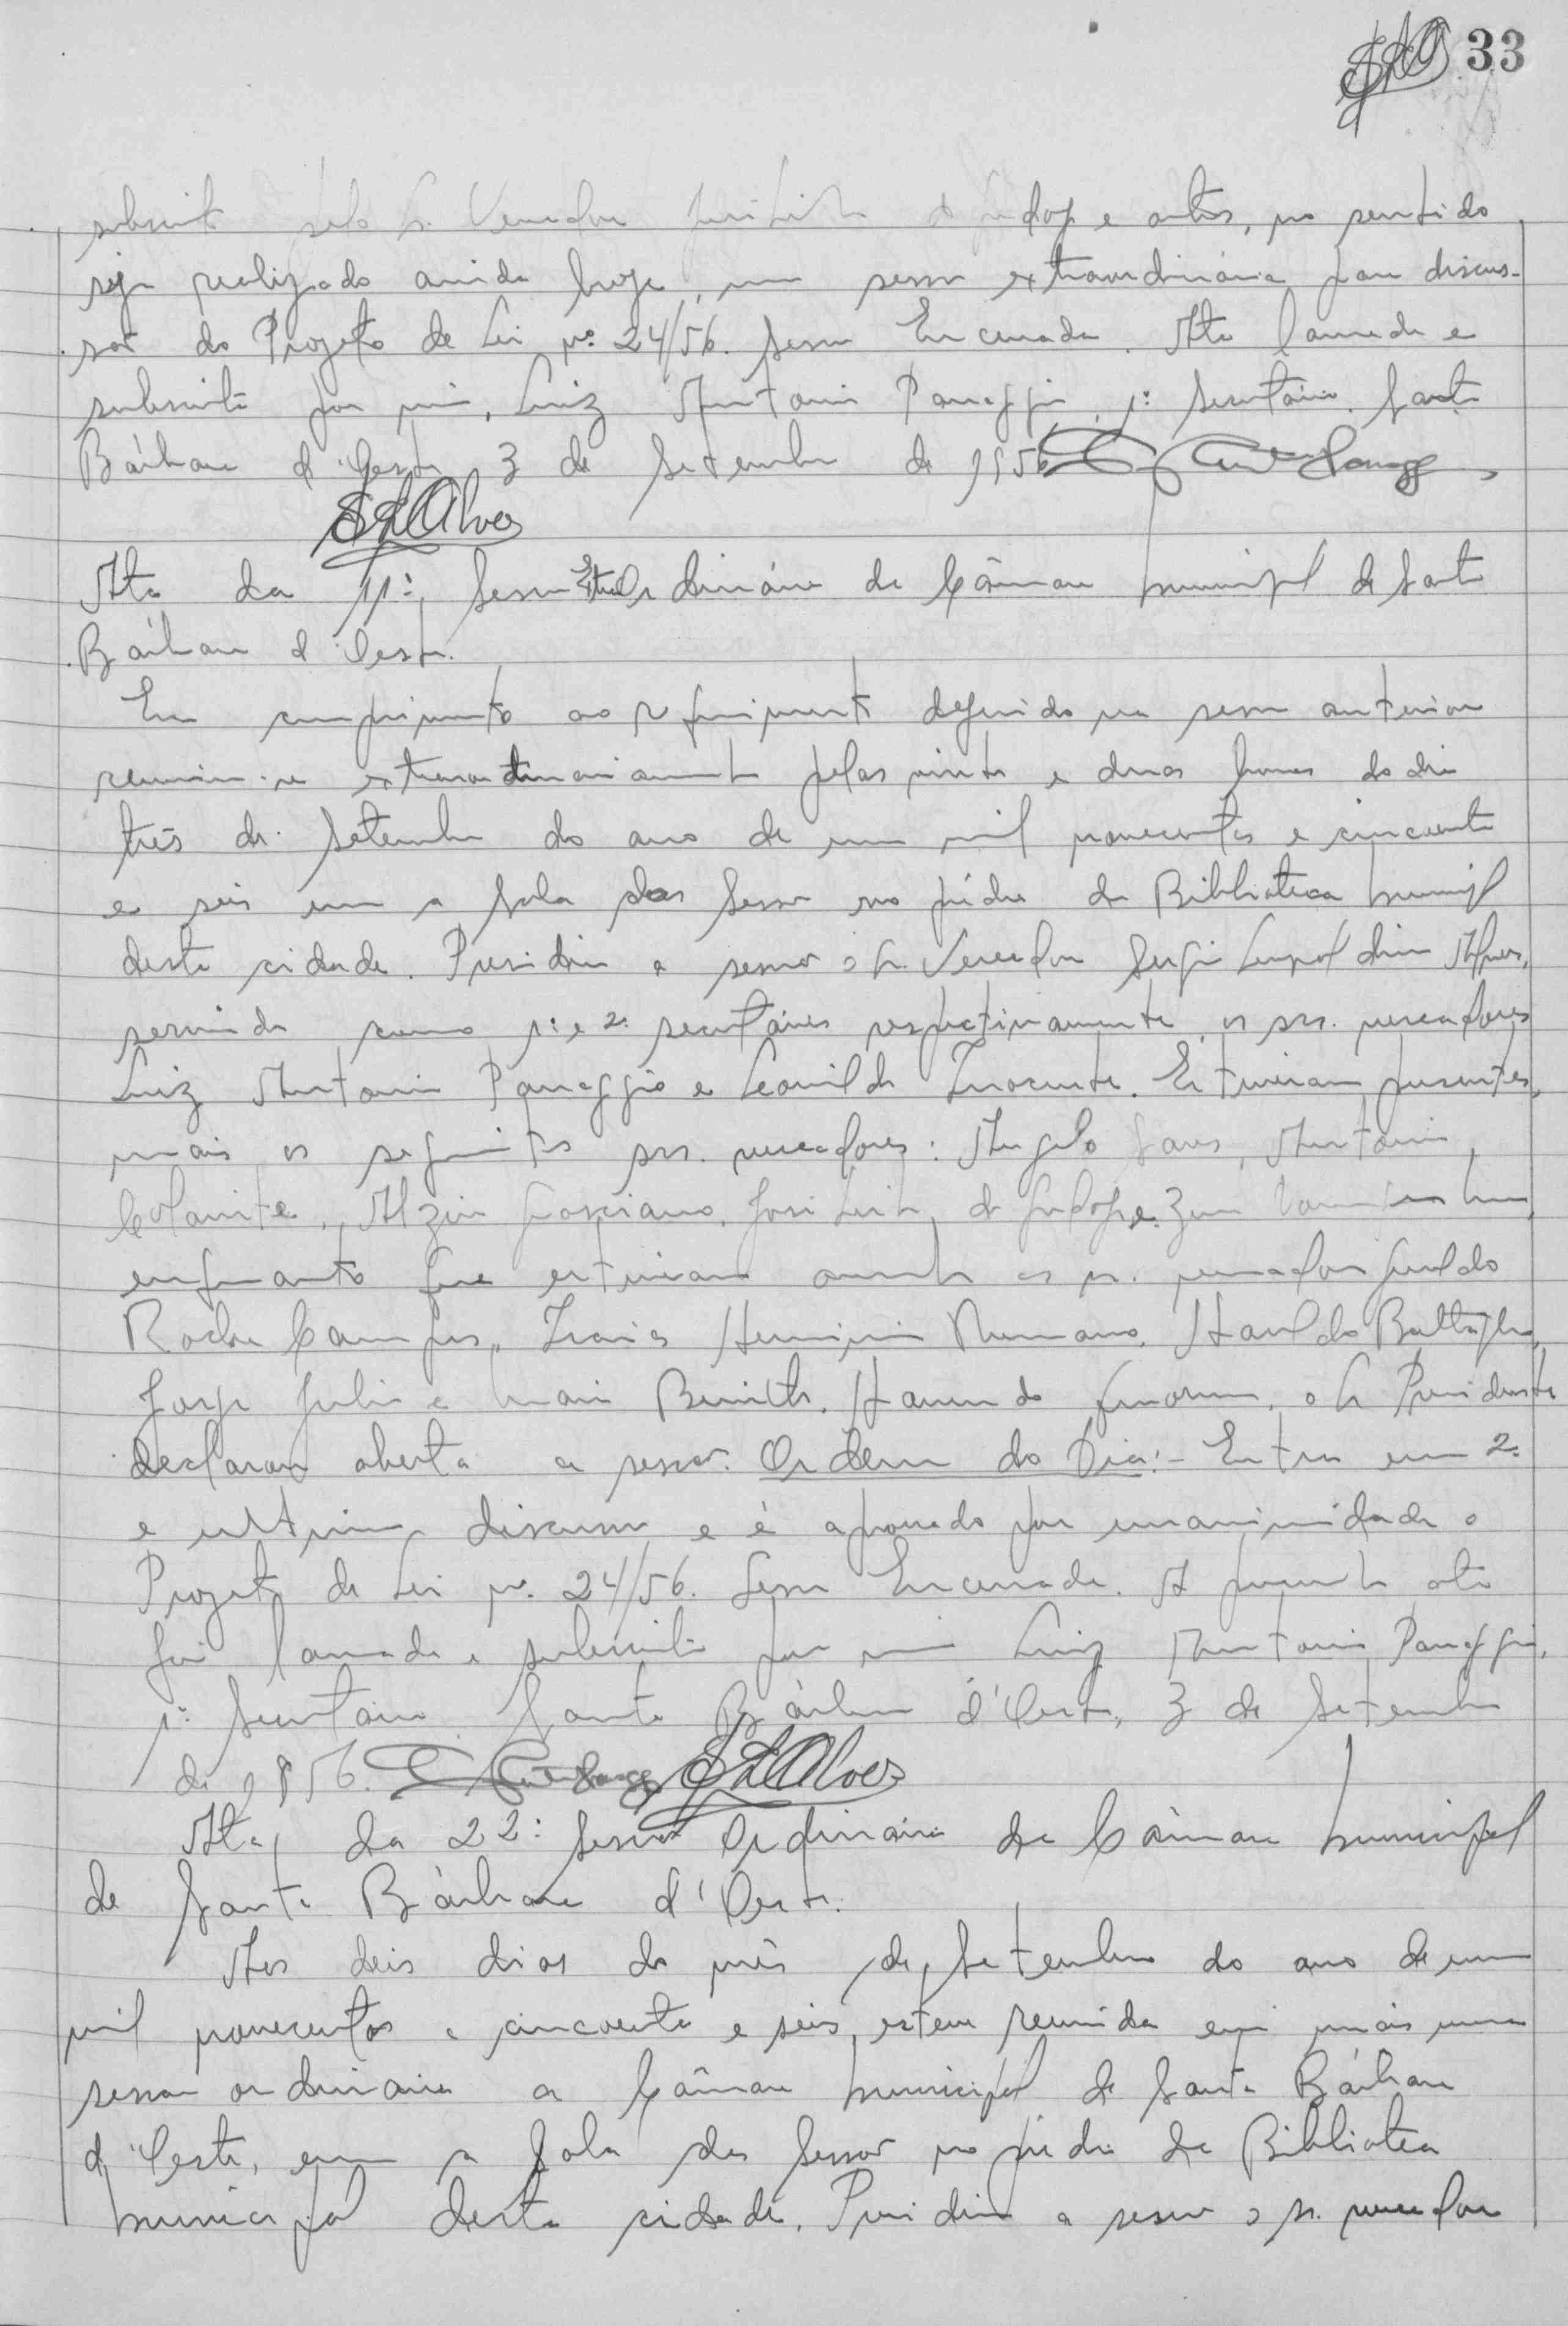 33
subscrito pelo Sr. Vereador José Luiz de Godoy e outros, no sentido
seja realizado ainda hoje, uma sessão extraordinária para discus-
são do Projeto de Lei nº 24/56. Sessão Encerrada. Ata lavrada e
subscrita por mim, Luiz Antonio Panaggio, 1º Secretário. Santa
Bárbara d'Oeste, 3 de Setembro de 1956
SLAlves
Ata da 11ª Sessão Extra Ordinária da Câmara Municipal de Santa
Bárbara d'Oeste.
Em cumprimento ao requerimento deferido na sessão anterior
reuniu-se extraordinariamente pelas vinte e duas horas do dia
três de Setembro do ano de um mil novecentos e cincoenta
e seis em a Sala das Sessões no prédio da Biblioteca Municipal
desta cidade. Presidiu a sessão o Sr. Vereador Sergio Leopoldino Alves,
servindo como 1º e 2º secretários respectivamente, os srs. vereadores
Luiz Antonio Panaggio e Leonildo Inocente. Estiveram presentes,
mais os seguintes srs. vereadores: Angelo Sans, Antonio
Alzir José Luiz de Godoy e
enquanto que estiveram ausentes os srs. vereadores Geraldo
Rocha Campos, Izaias Herminio Romano, Haroldo Battaglia,
Jorge Julio e Mario Havendo quorum, o Sr Presidente
declarou aberta a sessão. Ordem do Dia:- Entra em 2ª
e ultima discussão e é aprovado por unanimidade o
Projeto de Lei nº. 24/56. Sessão Encerrada. A presente ata
foi lavrada e subscrita por mim Luiz Antonio Panaggio,
1º Secretário. Santa Bárbara d'Oeste, 3 de Setembro
de 1956. SLAlves
Ata da 22ª Sessão Ordinária da Câmara Municipal
de Santa Bárbara d'Oeste.
Aos deis dias do mês de Setembro do ano de um
mil novecentos e cincoenta e seis, esteve reunida em mais uma
sessão ordinária a Câmara Municipal de Santa Bárbara
d'Oeste, em a Sala das Sessões no prédio da Biblioteca
Municipal desta cidade. Presidiu a sessão o sr. vereador